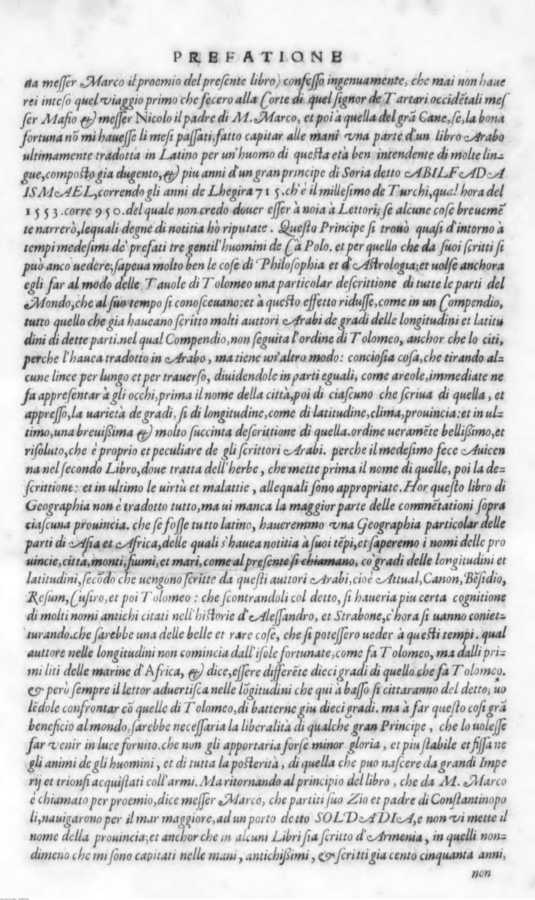 PREFATIONE
da messer Marco il proemio del presente libro) confesso ingenuamente, che mai non haue
rei inteso quel viaggio primo che fecero alla Corte di quel signor de Tartari occidētali mes
ser Mafio & messer Nicolo il padre di M. Marco, et poi à quella del grā Cane, se, la bona
fortuna nō mi hauesse li mesi passati, fatto capitar alle mani vna parte d'un libro Arabo
ultimamente tradotta in Latino per un'huomo di questa età ben intendente di molte lin-
gue, composto gia dugento, & piu anni d'un gran principe di Soria detto ABILFADA
ISMAEL, correndo gli anni de Lhegira 715. ch'è il millesimo de Turchi, qual hora del
1553. corre 950. del quale non credo douer esser à noia à Lettori, se alcune cose breuemē
te narrerò, lequali degne di notitia hò riputate. Questo Principe si trouò quasi d'intorno à
tempi medesimi de' prefati tre gentil'huomini de Cà Polo. et per quello che da suoi scritti si
può anco uedere, sapeua molto ben le cose di Philosophia et d'Astrologia: et uolse anchora
egli far al modo delle Tauole di Tolomeo una particolar descrittione di tutte le parti del
Mondo, che al suo tempo si conosceuano: et à questo effetto ridusse, come in un Compendio,
tutto quello che gia haueano scritto molti auttori Arabi de gradi delle longitudini et latitu
dini di dette parti. nel qual Compendio, non seguita l'ordine di Tolomeo, anchor che lo citi,
perche l'hauea tradotto in Arabo, ma tiene un'altro modo: conciosia cosa, che tirando al-
cune linee per lungo et per trauerso, diuidendole in parti eguali, come areole, immediate ne
fa appresentar à gli occhi, prima il nome della città, poi di ciascuno che scriua di quella, et
appresso, la uarietà de gradi, si di longitudine, come di latitudine, clima, prouincia: et in ul-
timo, una breuißima & molto succinta descrittione di quella. ordine ueramēte bellißimo, et
risoluto, che è proprio et peculiare de gli scrittori Arabi. perche il medesimo fece Auicen
na nel secondo Libro, doue tratta dell'herbe, che mette prima il nome di quelle, poi la de-
scrittione: et in ultimo le uirtù et malattie, allequali sono appropriate. Hor questo libro di
Geographia non è tradotto tutto, ma ui manca la maggior parte delle commētationi sopra
ciascuna prouincia. che se fosse tutto latino, haueremmo vna Geographia particolar delle
parti di Asia et Africa, delle quali s'hauea notitia à suoi tēpi, et saperemo i nomi delle pro
uincie, città, monti, fiumi, et mari, come al presente si chiamano, co gradi delle longitudini et
latitudini, secōdo che uengono scritte da questi auttori Arabi, cioè Attual, Canon, Bēsidio,
Resum, Cusiro, et poi Tolomeo: che scontrandoli col detto, si haueria piu certa cognitione
di molti nomi antichi citati nell'historie d'Alessandro, et Strabone, c'hora si uanno coniet-
turando. che sarebbe una delle belle et rare cose, che si potessero ueder à questi tempi. qual
auttore nelle longitudini non comincia dall'isole fortunate, come fa Tolomeo, ma dalli pri-
mi liti delle marine d'Africa, & dice, essere differēte dieci gradi di quello che fa Tolomeo.
& però sempre il lettor aduertisca nelle lōgitudini che qui à basso si cittaranno del detto, uo
lēdole confrontar cō quelle di Tolomeo, di batterne giu dieci gradi. ma à far questo cosi grā
beneficio al mondo, sarebbe necessaria la liberalità di qualche gran Principe, che lo uolesse
far venir in luce fornito. che non gli apportaria forse minor gloria, et piu stabile et fissa ne
gli animi de gli huomini, et di tutta la posterità, di quella che puo nascere da grandi Impe
rij et trionfi acquistati coll'armi. Ma ritornando al principio del libro, che da M. Marco
è chiamato per proemio, dice messer Marco, che partiti suo Zio et padre di Constantinopo
li, nauigarono per il mar maggiore, ad un porto detto SOLDADIA, e non vi mette il
nome della prouincia: et anchor che in alcuni Libri sia scritto d'Armenia, in quelli non-
dimeno che mi sono capitati nelle mani, antichißimi, & scritti gia cento cinquanta anni,
non